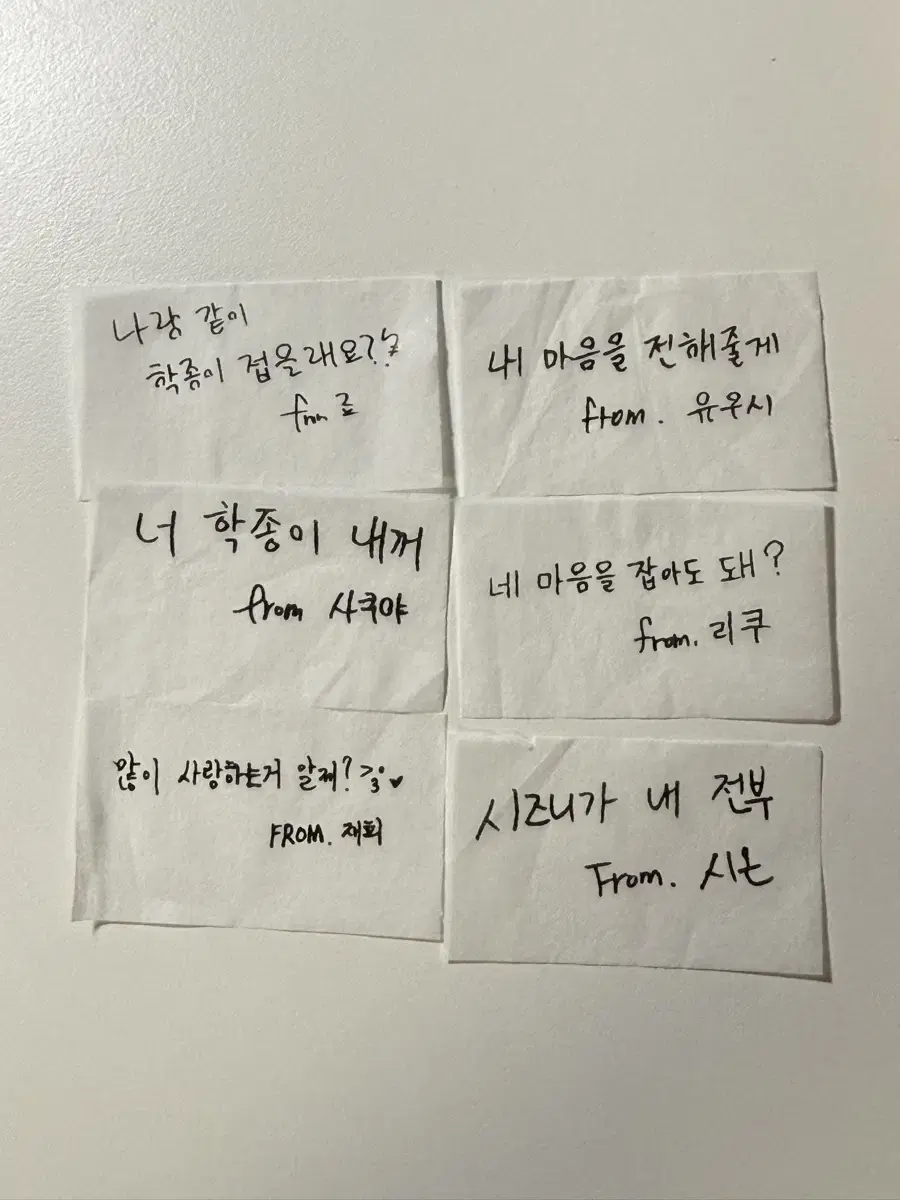 나랑 같이
학종이 접을래요??
from 료
내 마음을 전해줄게
from. 유우시
너 학종이 내꺼
from 사쿠야
네 마음을 잡아도 돼?
from. 리쿠
많이 사랑하는거 알제? >3° ♥
FROM. 재희
시즈니가 내 전부
From. 시온